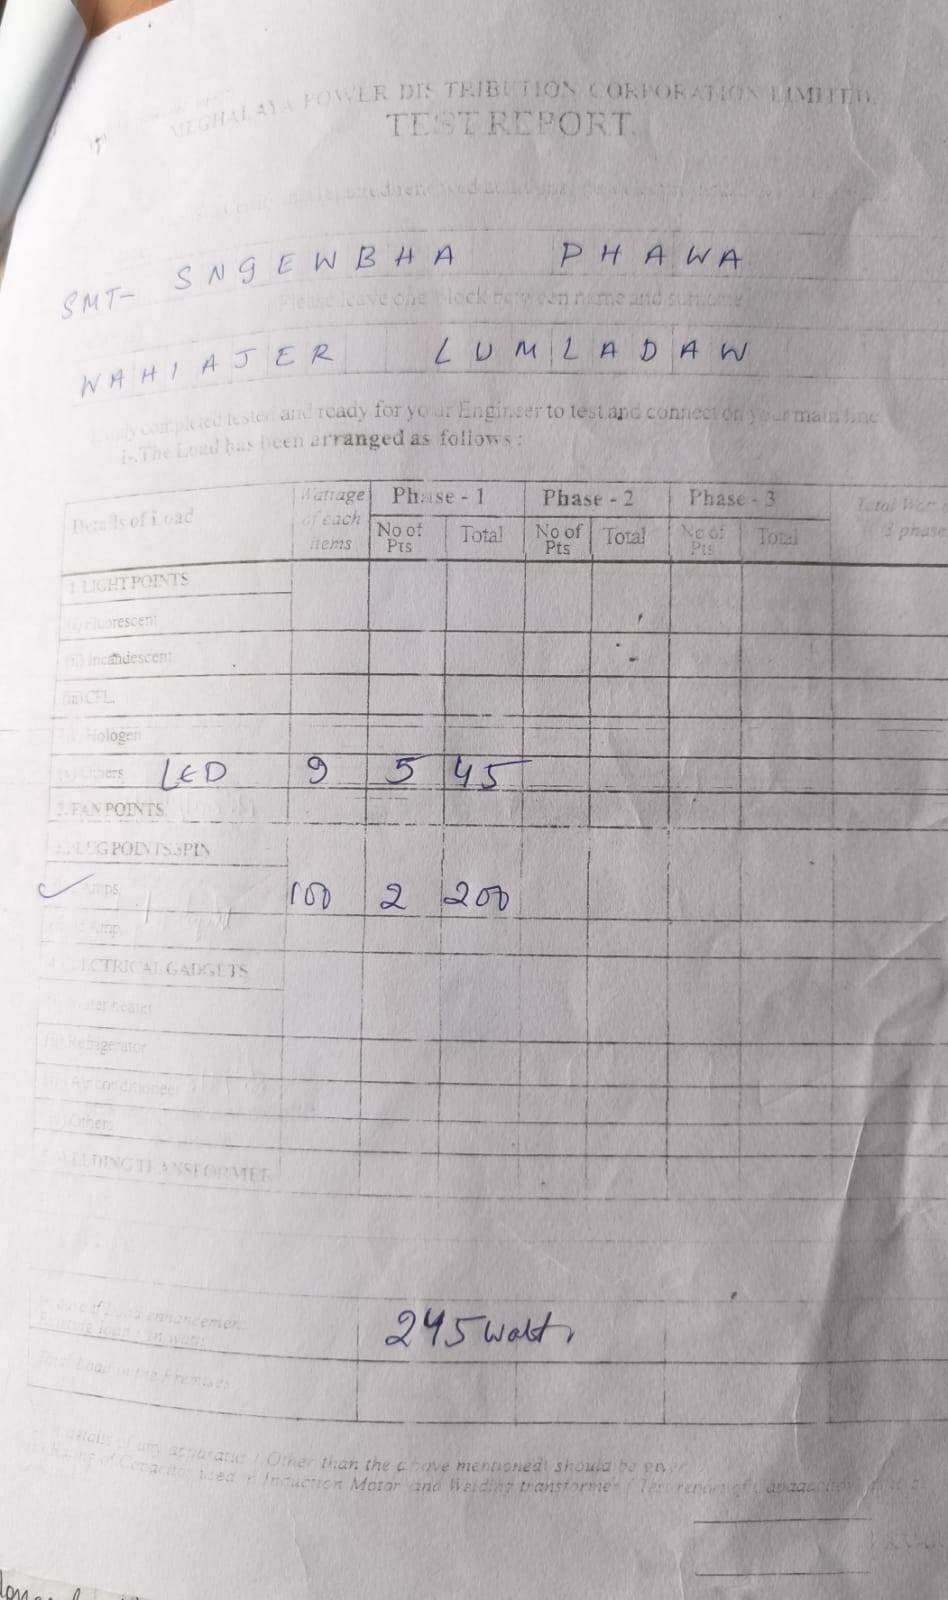 MEGHALAYA POWER DISTRIBUTION CORPORATION LIMITED.
TEST REPORT.
SMT- SNGEWBHA PHAWA
Please leave one block between name and surname
WAHIAJER LUMLADAW
completed tested and ready for your Engineer to test and connect on your main line
i-.The Load has been arranged as follows :
Details of Load Wattage of each items Phase - 1 Phase - 2 Phase - 3 Total 3 phase
No of Pts Total No of Pts Total No of Pts Total
1. LIGHT POINTS
(i) Fluorescent
(ii) Incandescent
(iii) CFL.
Hologen
(v) Others LED 9 5 45
2. FAN POINTS
3. PLUG POINTS 3 PIN
Amps 100 2 200
Amp
4. ELECTRICAL GADGETS
Water heater
(ii) Refrigerator
(iii) Air conditioneer
(iv) Others
5. WELDING TRANSFORMER
of Load enhancement
load in watt 245 watt
Total Load in the Premises
details of any apparatus ( Other than the above mentioned) should be given
of Capacitor used in Induction Motor and Welding transformer ( Test report of